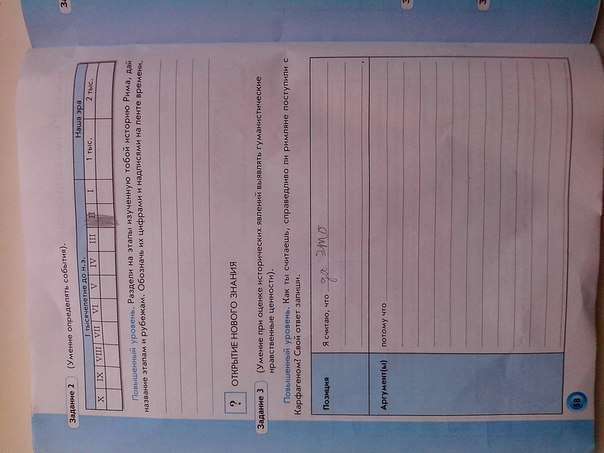 Задание 2 (Умение определять события).
I тысячелетие до н.э. Наша эра
X IX VIII VII VI V IV III II I 1 тыс. 2 тыс.
Повышенный уровень. Раздели на этапы изученную тобой историю Рима, дай
название этапам и рубежам. Обозначь их цифрами и надписями на ленте времени.
? ОТКРЫТИЕ НОВОГО ЗНАНИЯ
Задание 3 (Умение при оценке исторических явлений выявлять гуманистические
нравственные ценности).
Повышенный уровень. Как ты считаешь, справедливо ли римляне поступили с
Карфагеном? Свой ответ запиши.
Позиция Я считаю, что да это
Аргумент(ы) потому что
58